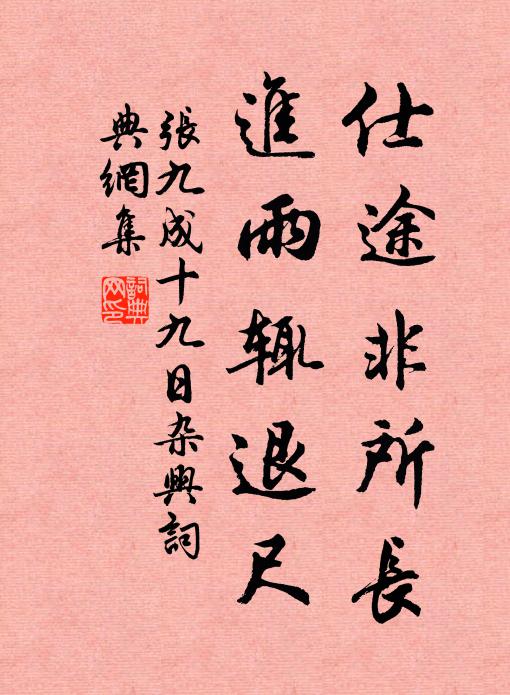 仕途非所長
進雨輒退尺
張九成十九日杂興詞
典網集
詞典网印